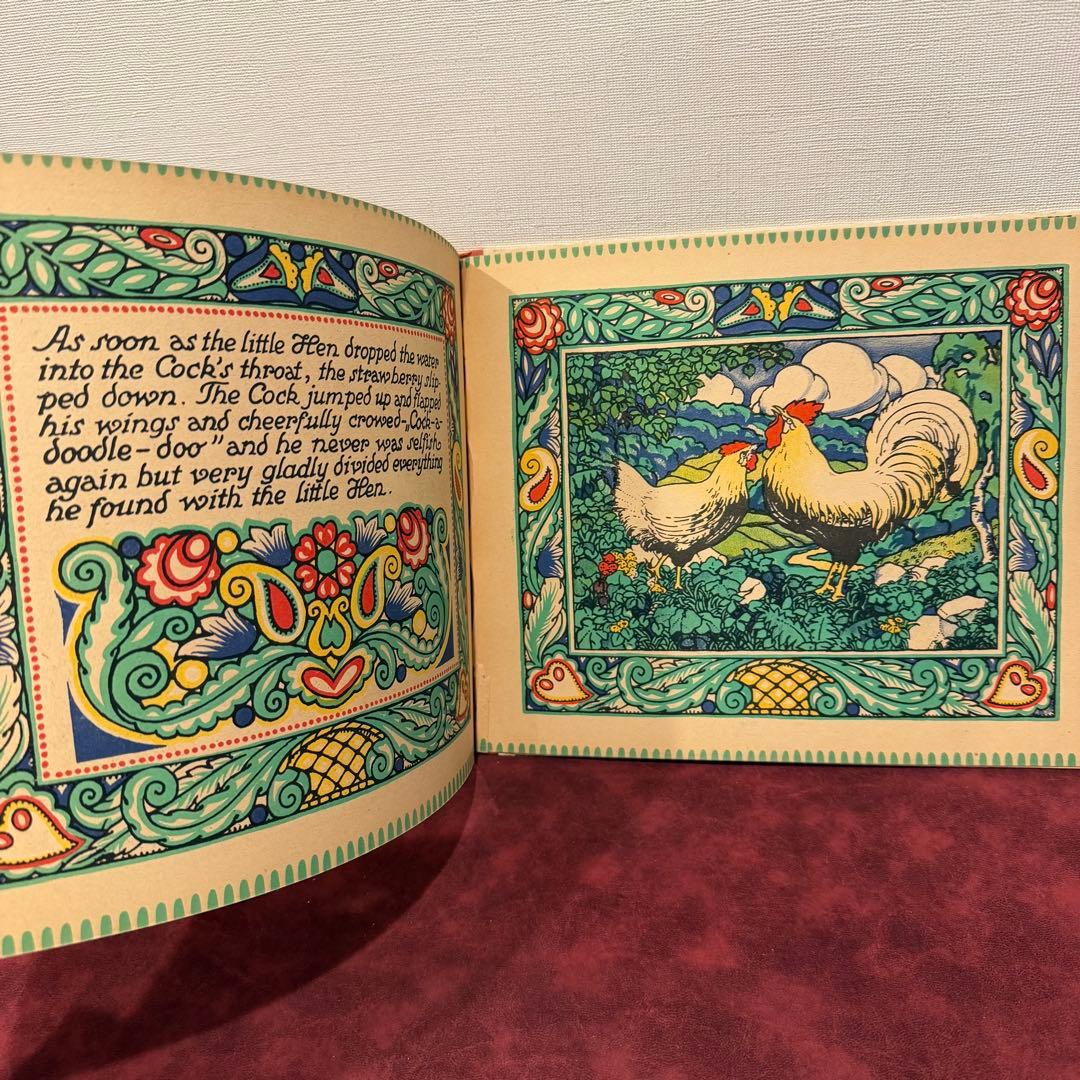 As soon as the little Hen dropped the water
into the Cock's throat, the strawberry slip-
ped down. The Cock jumped up and flapped
his wings and cheerfully crowed-„Cock-a-
doodle-doo" and he never was selfish
again but very gladly divided everything
he found with the little Hen.